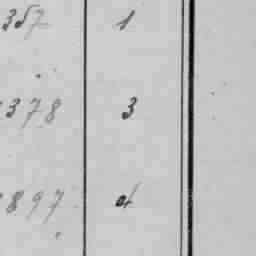 357 1
378 3
897 4